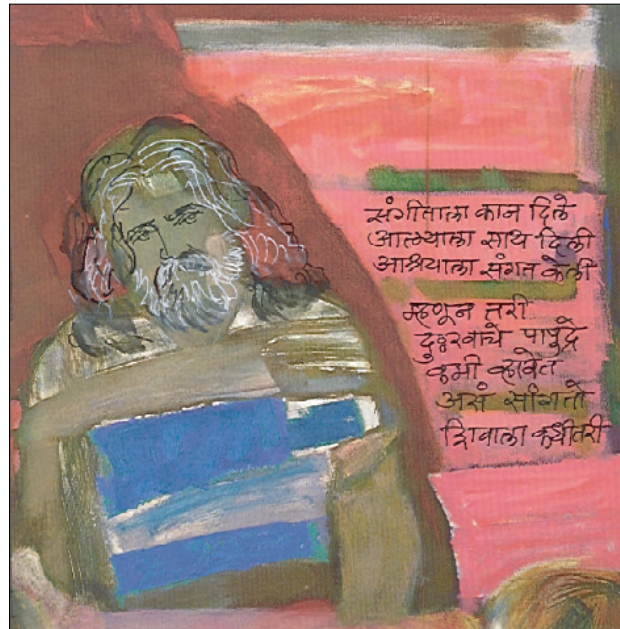 संगीताला कान दिले
आत्म्याला साथ दिली
आश्रयाला संगत केली
म्हणून तरी
दुःखाचे पापुद्रे
कमी व्हावेत
असं सांगतो
जिवाला कधीतरी